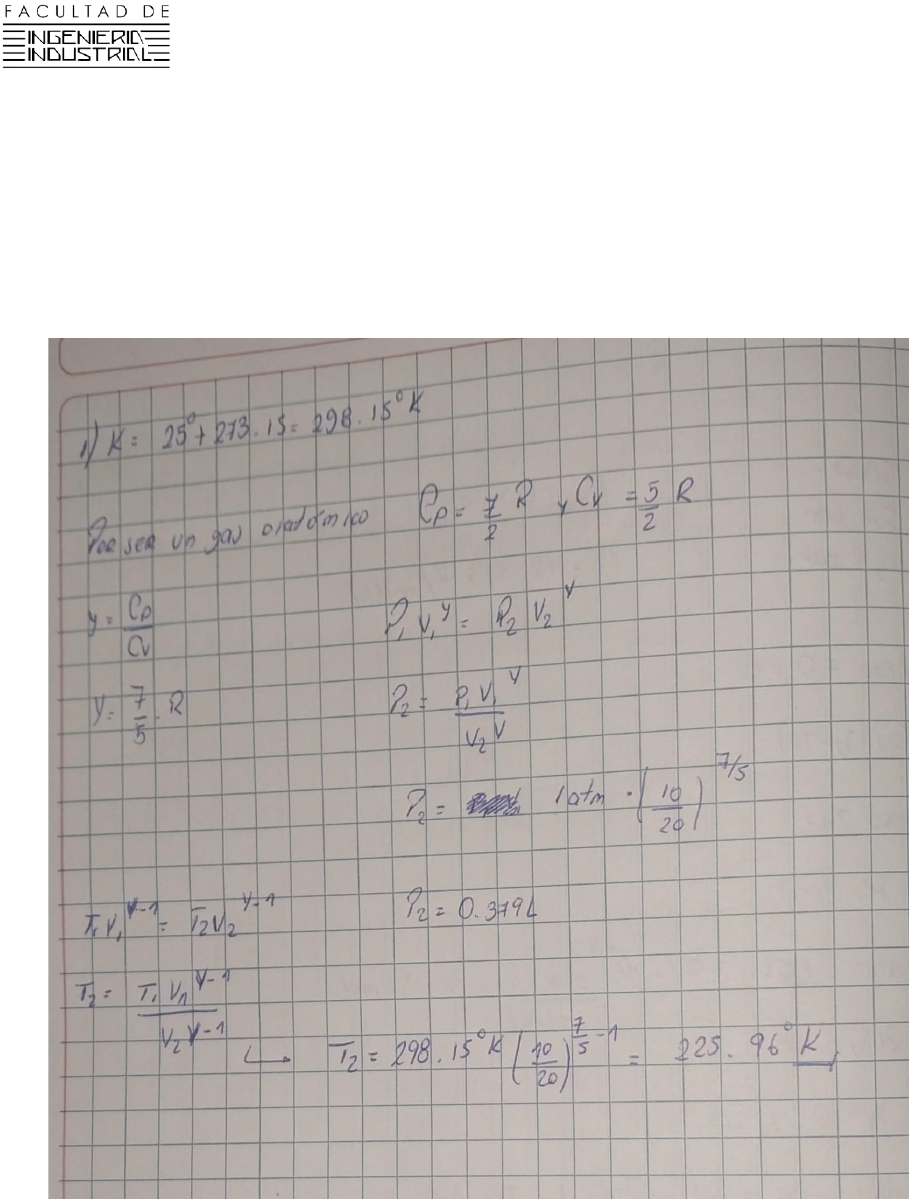 FACULTAD DE
INGENIERIA
INDUSTRIAL
1) K = 25° + 273.15 = 298.15°K
Por ser un gas diatómico Cp = 7/2 R y Cv = 5/2 R
γ = Cp/Cv P₁V₁^γ = P₂V₂^γ
γ = 7/5 · R P₂ = P₁V₁^γ / V₂^γ
P₂ = 1 atm · (10/20)^7/5
T₁V₁^γ-1 = T₂V₂^γ-1 P₂ = 0.379L
T₂ = T₁V₁^γ-1 / V₂^γ-1
↳ T₂ = 298.15°K (10/20)^7/5-1 = 225.96°K